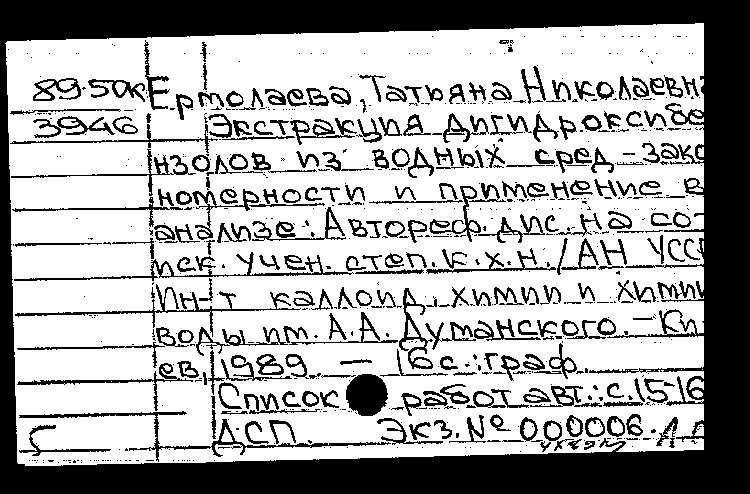 89-50к Ермолаева, Татьяна Николаевна
3946 Экстракция дигидроксибе
нзолов из водных сред - зако
номерности и применение в
анализе: Автореф. дис. на со-
иск. учен. степ. к.х.н. / АН УССР
Ин-т каллоид. химии и химии
воды им. А.А. Думанского. - Ки
ев, 1989. - 16 с.: граф.
Список работ авт.: с. 15-16
ДСП. Экз. № 000006.